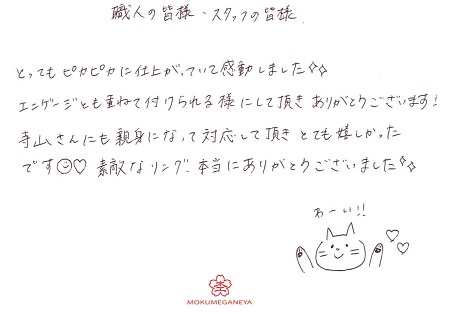 職人の皆様・スタッフの皆様
とってもピカピカに仕上がっていて感動しました✧✧
エンゲージとも重ねて付けられる様にして頂きありがとうございます!
寺山さんにも親身になって対応して頂きとても嬉しかった
です☺♡ 素敵なリング、本当にありがとうございました✧✧
わーい!!
MOKUMEGANEYA